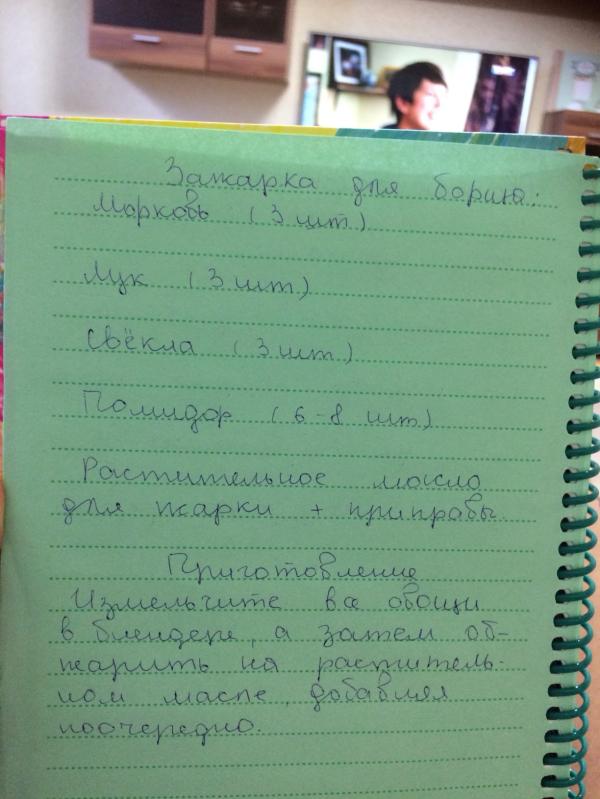 Зажарка для борща:
Морковь (3 шт)
Лук (3 шт)
Свёкла (3 шт)
Помидор (6-8 шт)
Растительное масло
для жарки + приправы
Приготовление
Измельчите все овощи
в блендере, а затем об-
жарить на раститель-
ном масле, добавляя
поочередно.